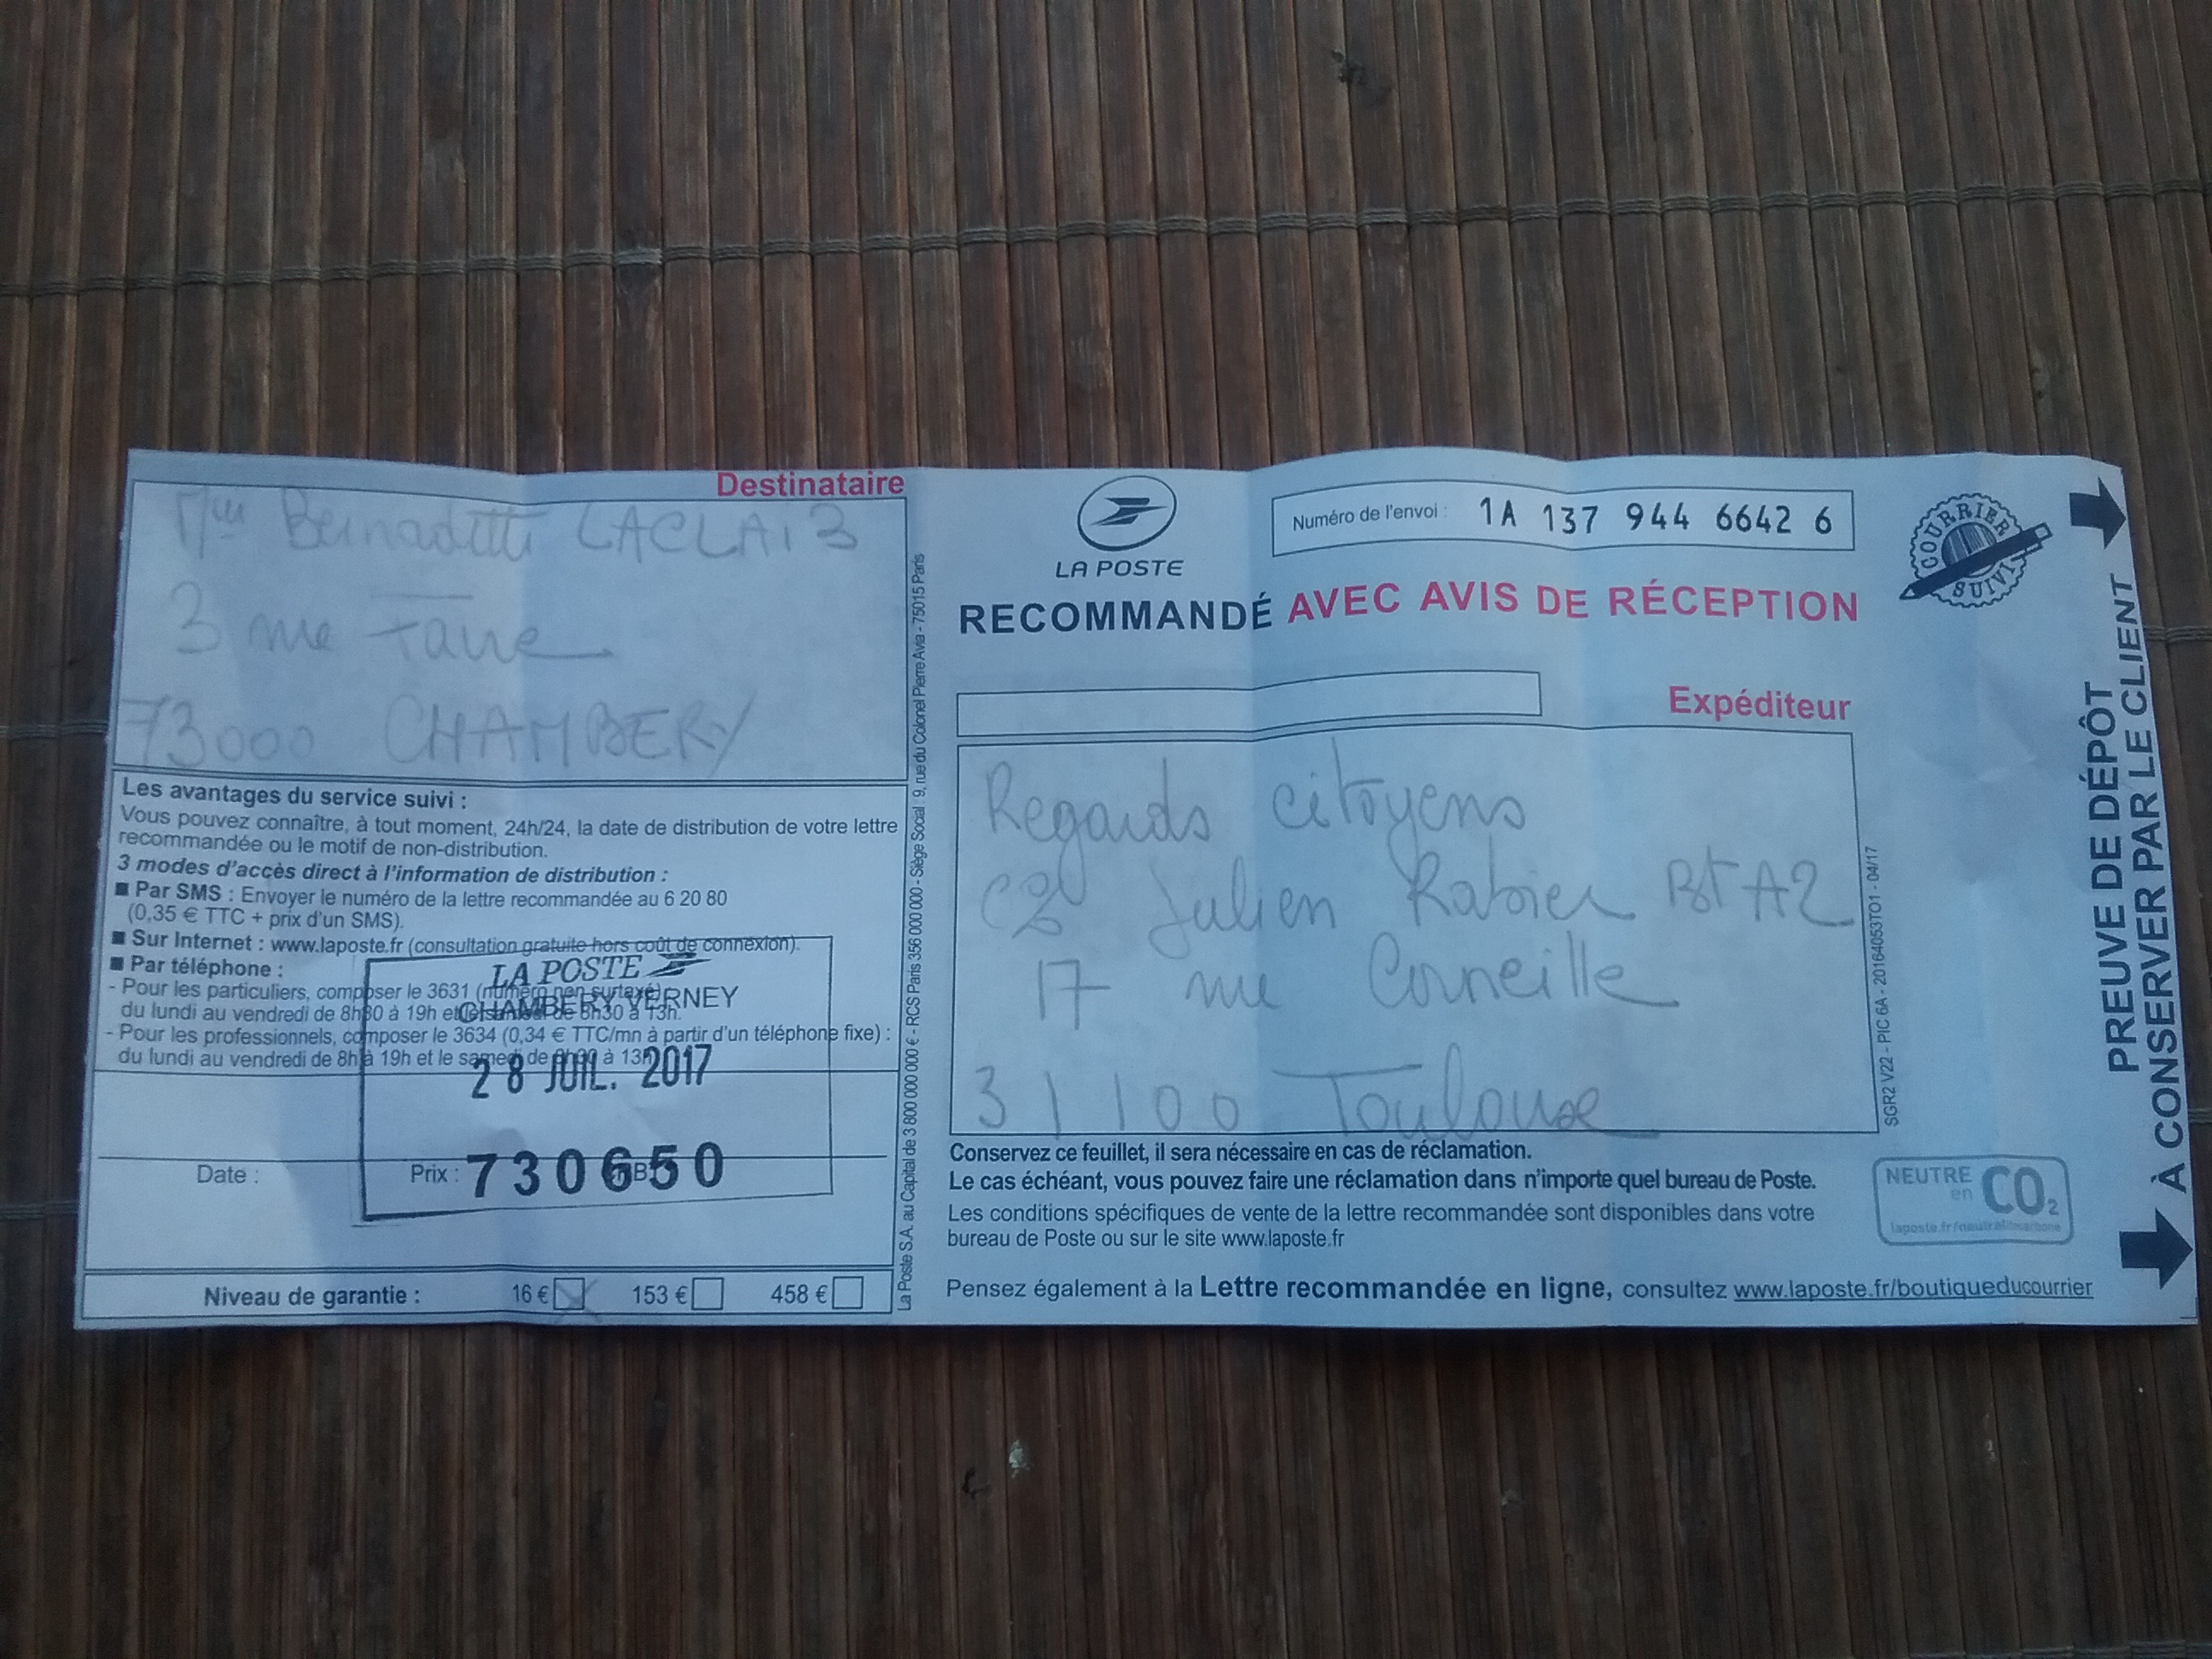 Destinataire
Mme Bernadette LACLAIS
3 rue Favre
73000 CHAMBERY
Les avantages du service suivi :
Vous pouvez connaître, à tout moment, 24h/24, la date de distribution de votre lettre
recommandée ou le motif de non-distribution.
3 modes d'accès direct à l'information de distribution :
■ Par SMS : Envoyer le numéro de la lettre recommandée au 6 20 80
(0,35 € TTC + prix d'un SMS).
■ Sur Internet : www.laposte.fr (consultation gratuite hors coût de connexion).
■ Par téléphone :
- Pour les particuliers, composer le 3631 (numéro non surtaxé)
du lundi au vendredi de 8h30 à 19h et le samedi de 8h30 à 13h.
- Pour les professionnels, composer le 3634 (0,34 € TTC/mn à partir d'un téléphone fixe) :
du lundi au vendredi de 8h à 19h et le samedi de à 13h
LA POSTE
CHAMBERY VERNEY
28 JUIL. 2017
730650
Date :
Prix :
Niveau de garantie : 16 € 153 € 458 €
La Poste S.A. au Capital de 3 800 000 000 € - RCS Paris 356 000 000 - Siège Social : 9, rue du Colonel Pierre Avia - 75015 Paris
LA POSTE
Numéro de l'envoi : 1A 137 944 6642 6
COURRIER SUIVI
RECOMMANDÉ AVEC AVIS DE RÉCEPTION
Expéditeur
Regards citoyens
Julien Rabier Bt A2
17 rue Corneille
31100 Toulouse
SGR2 V22 - PIC 6A - 20164053TO1 - 04/17
Conservez ce feuillet, il sera nécessaire en cas de réclamation.
Le cas échéant, vous pouvez faire une réclamation dans n'importe quel bureau de Poste.
Les conditions spécifiques de vente de la lettre recommandée sont disponibles dans votre
bureau de Poste ou sur le site www.laposte.fr
Pensez également à la Lettre recommandée en ligne, consultez www.laposte.fr/boutiqueducourrier
NEUTRE en CO₂
laposte.fr/neutralitecarbone
PREUVE DE DÉPÔT
À CONSERVER PAR LE CLIENT